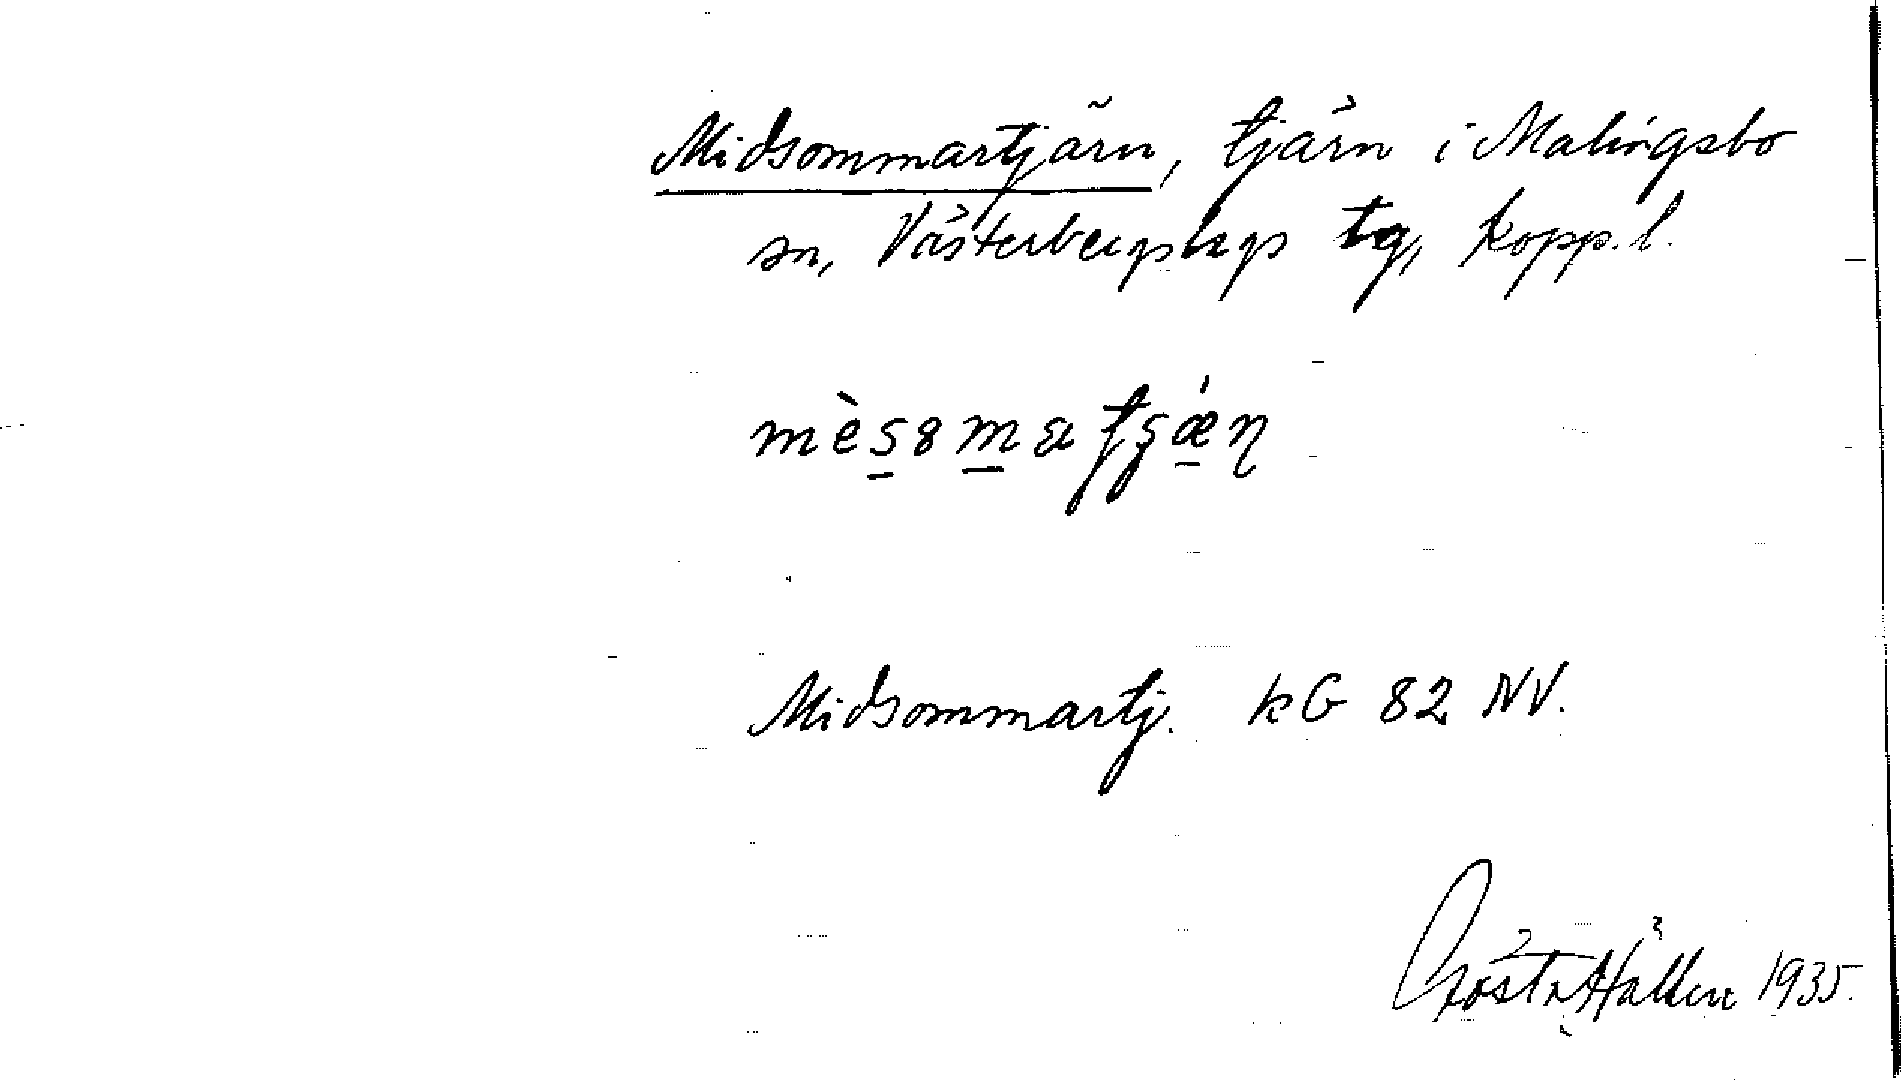 Midsommartjärn, tjärn i Malingsbo
sn, Västerbergslags tg, Kopp. l.
mèsȣmatʂǽɳ
Midsommartj. kG 82 NV.
Gösta Hällen 1935.